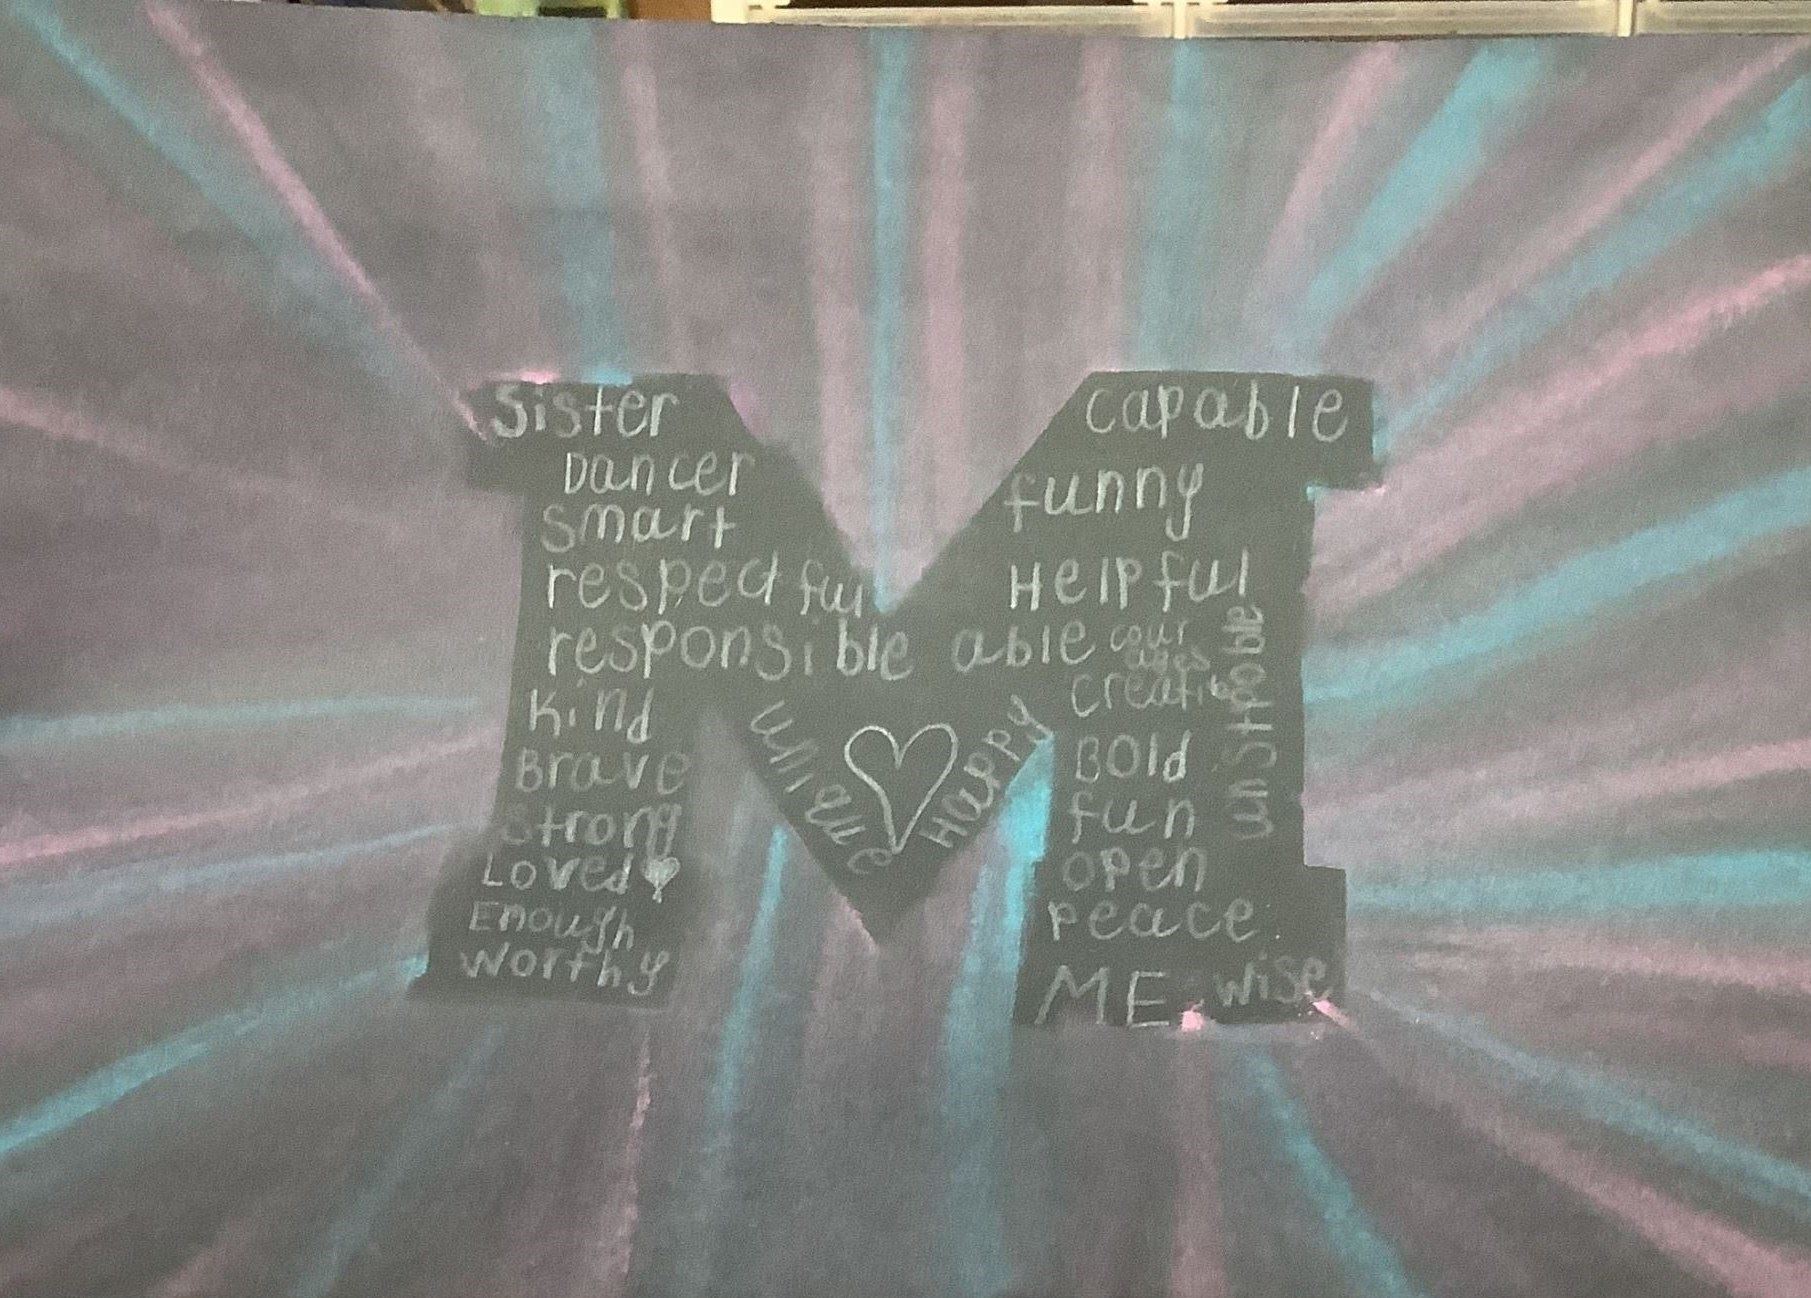 Sister
Dancer
Smart
respectful
responsible
Kind
Brave
Strong
Loved
Enough
Worthy
unique
Happy
capable
funny
Helpful
able
cour
ages
creative
unstpoble
Bold
fun
open
peace
ME
wise